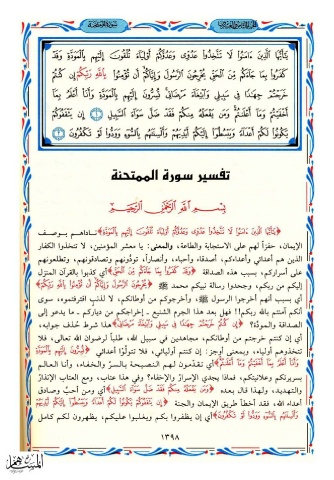 يَٰٓأَيُّهَا ٱلَّذِينَ ءَامَنُوا۟ لَا تَتَّخِذُوا۟ عَدُوِّى وَعَدُوَّكُمْ أَوْلِيَآءَ تُلْقُونَ إِلَيْهِم بِٱلْمَوَدَّةِ وَقَدْ
كَفَرُوا۟ بِمَا جَآءَكُم مِّنَ ٱلْحَقِّ يُخْرِجُونَ ٱلرَّسُولَ وَإِيَّاكُمْ أَن تُؤْمِنُوا۟ بِٱللَّهِ رَبِّكُمْ إِن كُنتُمْ
خَرَجْتُمْ جِهَٰدًا فِى سَبِيلِى وَٱبْتِغَآءَ مَرْضَاتِى تُسِرُّونَ إِلَيْهِم بِٱلْمَوَدَّةِ وَأَنَا۠ أَعْلَمُ بِمَآ
أَخْفَيْتُمْ وَمَآ أَعْلَنتُمْ وَمَن يَفْعَلْهُ مِنكُمْ فَقَدْ ضَلَّ سَوَآءَ ٱلسَّبِيلِ ١ إِن يَثْقَفُوكُمْ
يَكُونُوا۟ لَكُمْ أَعْدَآءً وَيَبْسُطُوٓا۟ إِلَيْكُمْ أَيْدِيَهُمْ وَأَلْسِنَتَهُم بِٱلسُّوٓءِ وَوَدُّوا۟ لَوْ تَكْفُرُونَ ٢
تفسير سورة الممتحنة
بِسْمِ ٱللَّهِ ٱلرَّحْمَٰنِ ٱلرَّحِيمِ
﴿يَٰٓأَيُّهَا ٱلَّذِينَ ءَامَنُوا۟ لَا تَتَّخِذُوا۟ عَدُوِّى وَعَدُوَّكُمْ أَوْلِيَآءَ تُلْقُونَ إِلَيْهِم بِٱلْمَوَدَّةِ﴾ ناداهم بوصف
الإيمان، حفزاً لهم على الاستجابة والطاعة، والمعنى: يا معشر المؤمنين، لا تتخذوا الكفار
الذين هم أعدائي وأعداءكم، أصدقاء وأحباء، وأنصاراً، تودُّونهم وتصادقونهم، وتطلعونهم
على أسراركم، بسبب هذه الصداقة ﴿وَقَدْ كَفَرُوا۟ بِمَا جَآءَكُم مِّنَ ٱلْحَقِّ﴾ أي كذبوا بالقرآن المنزل
إليكم من ربكم، وجحدوا رسالة نبيكم محمد ﷺ ﴿يُخْرِجُونَ ٱلرَّسُولَ وَإِيَّاكُمْ أَن تُؤْمِنُوا۟ بِٱللَّهِ رَبِّكُمْ﴾
أي بسبب أنهم أخرجوا الرسول ﷺ، وأخرجوكم من أوطانكم، لا لذنبٍ اقترفتموه، سوى
أنكم آمنتم بالله ربكم!! فهل بعد هذا الجرم الشنيع ـ إخراجكم من دياركم ـ ما يدعو إلى
الصداقة والمودَّة؟ ﴿إِن كُنتُمْ خَرَجْتُمْ جِهَٰدًا فِى سَبِيلِى وَٱبْتِغَآءَ مَرْضَاتِى﴾ هذا شرط حُذف جوابه،
أي إن كنتم خرجتم من أوطانكم، مجاهدين في سبيل الله، طلباً لرضوان الله تعالى، فلا
تتخذوهم أولياء، وبمعنى أوجز: إن كنتم أوليائي، فلا تتولَّوْا أعدائي ﴿تُسِرُّونَ إِلَيْهِم بِٱلْمَوَدَّةِ
وَأَنَا۠ أَعْلَمُ بِمَآ أَخْفَيْتُمْ وَمَآ أَعْلَنتُمْ﴾ أي تقدِّمون لهم النصيحة بالسرِّ والخفاء، وأنا العالم
بسريرتكم وعلانيتكم، فماذا يجدي الإسرارُ والإخفاء؟ وفي هذا عتاب، ومع العتاب الإنذارُ
والتهديد، ولهذا قال بعده ﴿وَمَن يَفْعَلْهُ مِنكُمْ فَقَدْ ضَلَّ سَوَآءَ ٱلسَّبِيلِ﴾ أي ومن أحبَّ وصادق
أعداء الله، فقد أخطأ طريق الإيمان والجنة ﴿إِن يَثْقَفُوكُمْ يَكُونُوا۟ لَكُمْ أَعْدَآءً وَيَبْسُطُوٓا۟ إِلَيْكُمْ أَيْدِيَهُمْ
وَأَلْسِنَتَهُم بِٱلسُّوٓءِ وَوَدُّوا۟ لَوْ تَكْفُرُونَ﴾ أي إن يظفروا بكم ويغلبوا عليكم، يظهرون لكم كامل
١٣٩٨